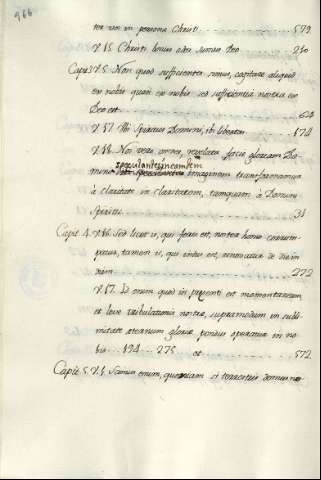 966
tes vos in persona Christi ........ 579
V.15. Christi bonus odor sumus Deo ... 230
Cap. 3 V.5. Non quod sufficientes simus, cogitare aliquid
ex nobis quasi ex nobis sed sufficientia nostra ex
Deo est ........ 624
V.17. Ubi Spiritus Domini, ibi libertas ... 174
V.18. Nos vero omnes, revelata facie gloriam Do-
speculantes, in eamdem
mini imaginem transformamur
a claritate in claritatem, tamquam à Domini
Spiritu ........ 31
Capit. 4. V.16. Sed licet is, qui foris est, noster homo corrum-
patur, tamen is, qui intus est, renovatur de die in
diem ........ 272
V.17. Id enim quod in praesenti est momentaneum
et leve tribulationis nostrae, supramodum in subli-
mitate aeternum gloriae pondus operatur in no-
bis ... 194 ... 275 ... et ........ 572
Capit. 5. V.1. Scimus enim, quoniam si terrestris domus nos-